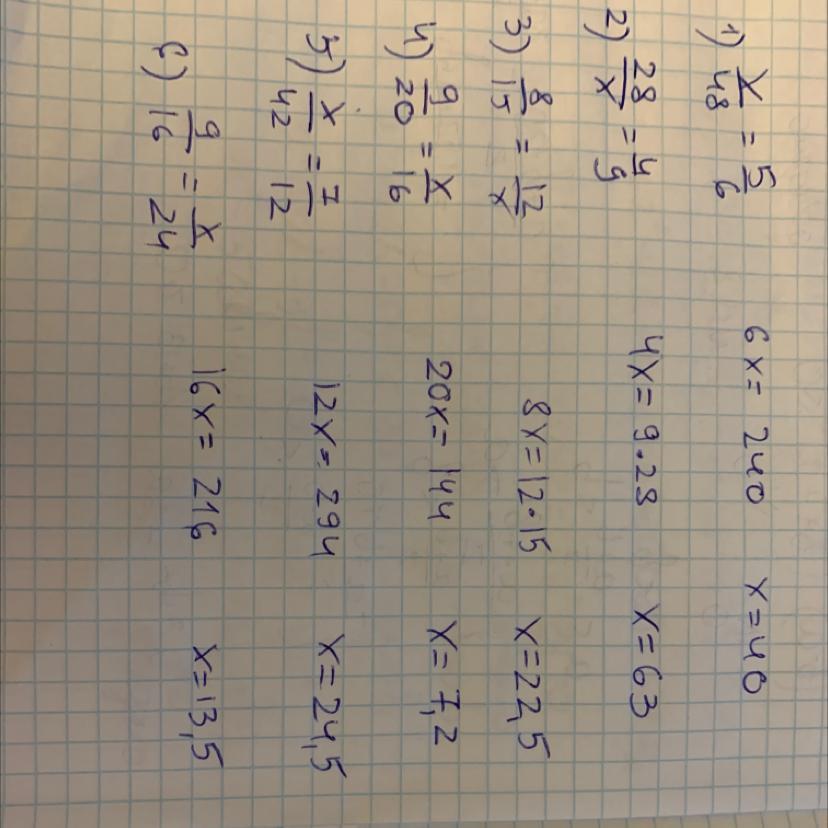 1) x/48 = 5/6 6x = 240 x = 40
2) 28/x = 4/9 4x = 9·28 x = 63
3) 8/15 = 12/x 8x = 12·15 x = 22,5
4) 9/20 = x/16 20x = 144 x = 7,2
5) x/42 = 7/12 12x = 294 x = 24,5
6) 9/16 = x/24 16x = 216 x = 13,5